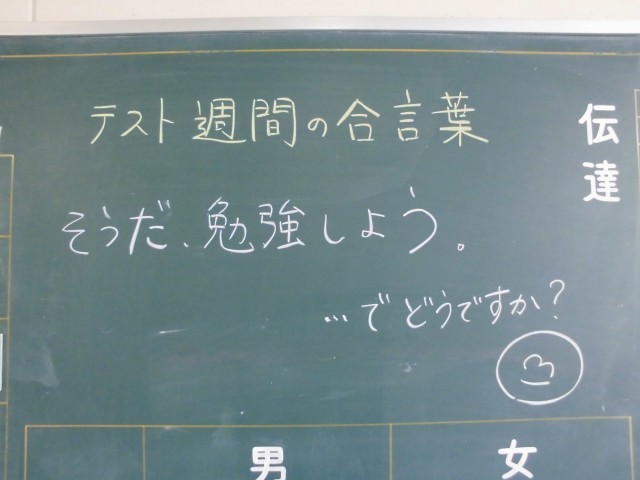 テスト週間の合言葉
そうだ、勉強しよう。
…でどうですか?
伝達
男
女